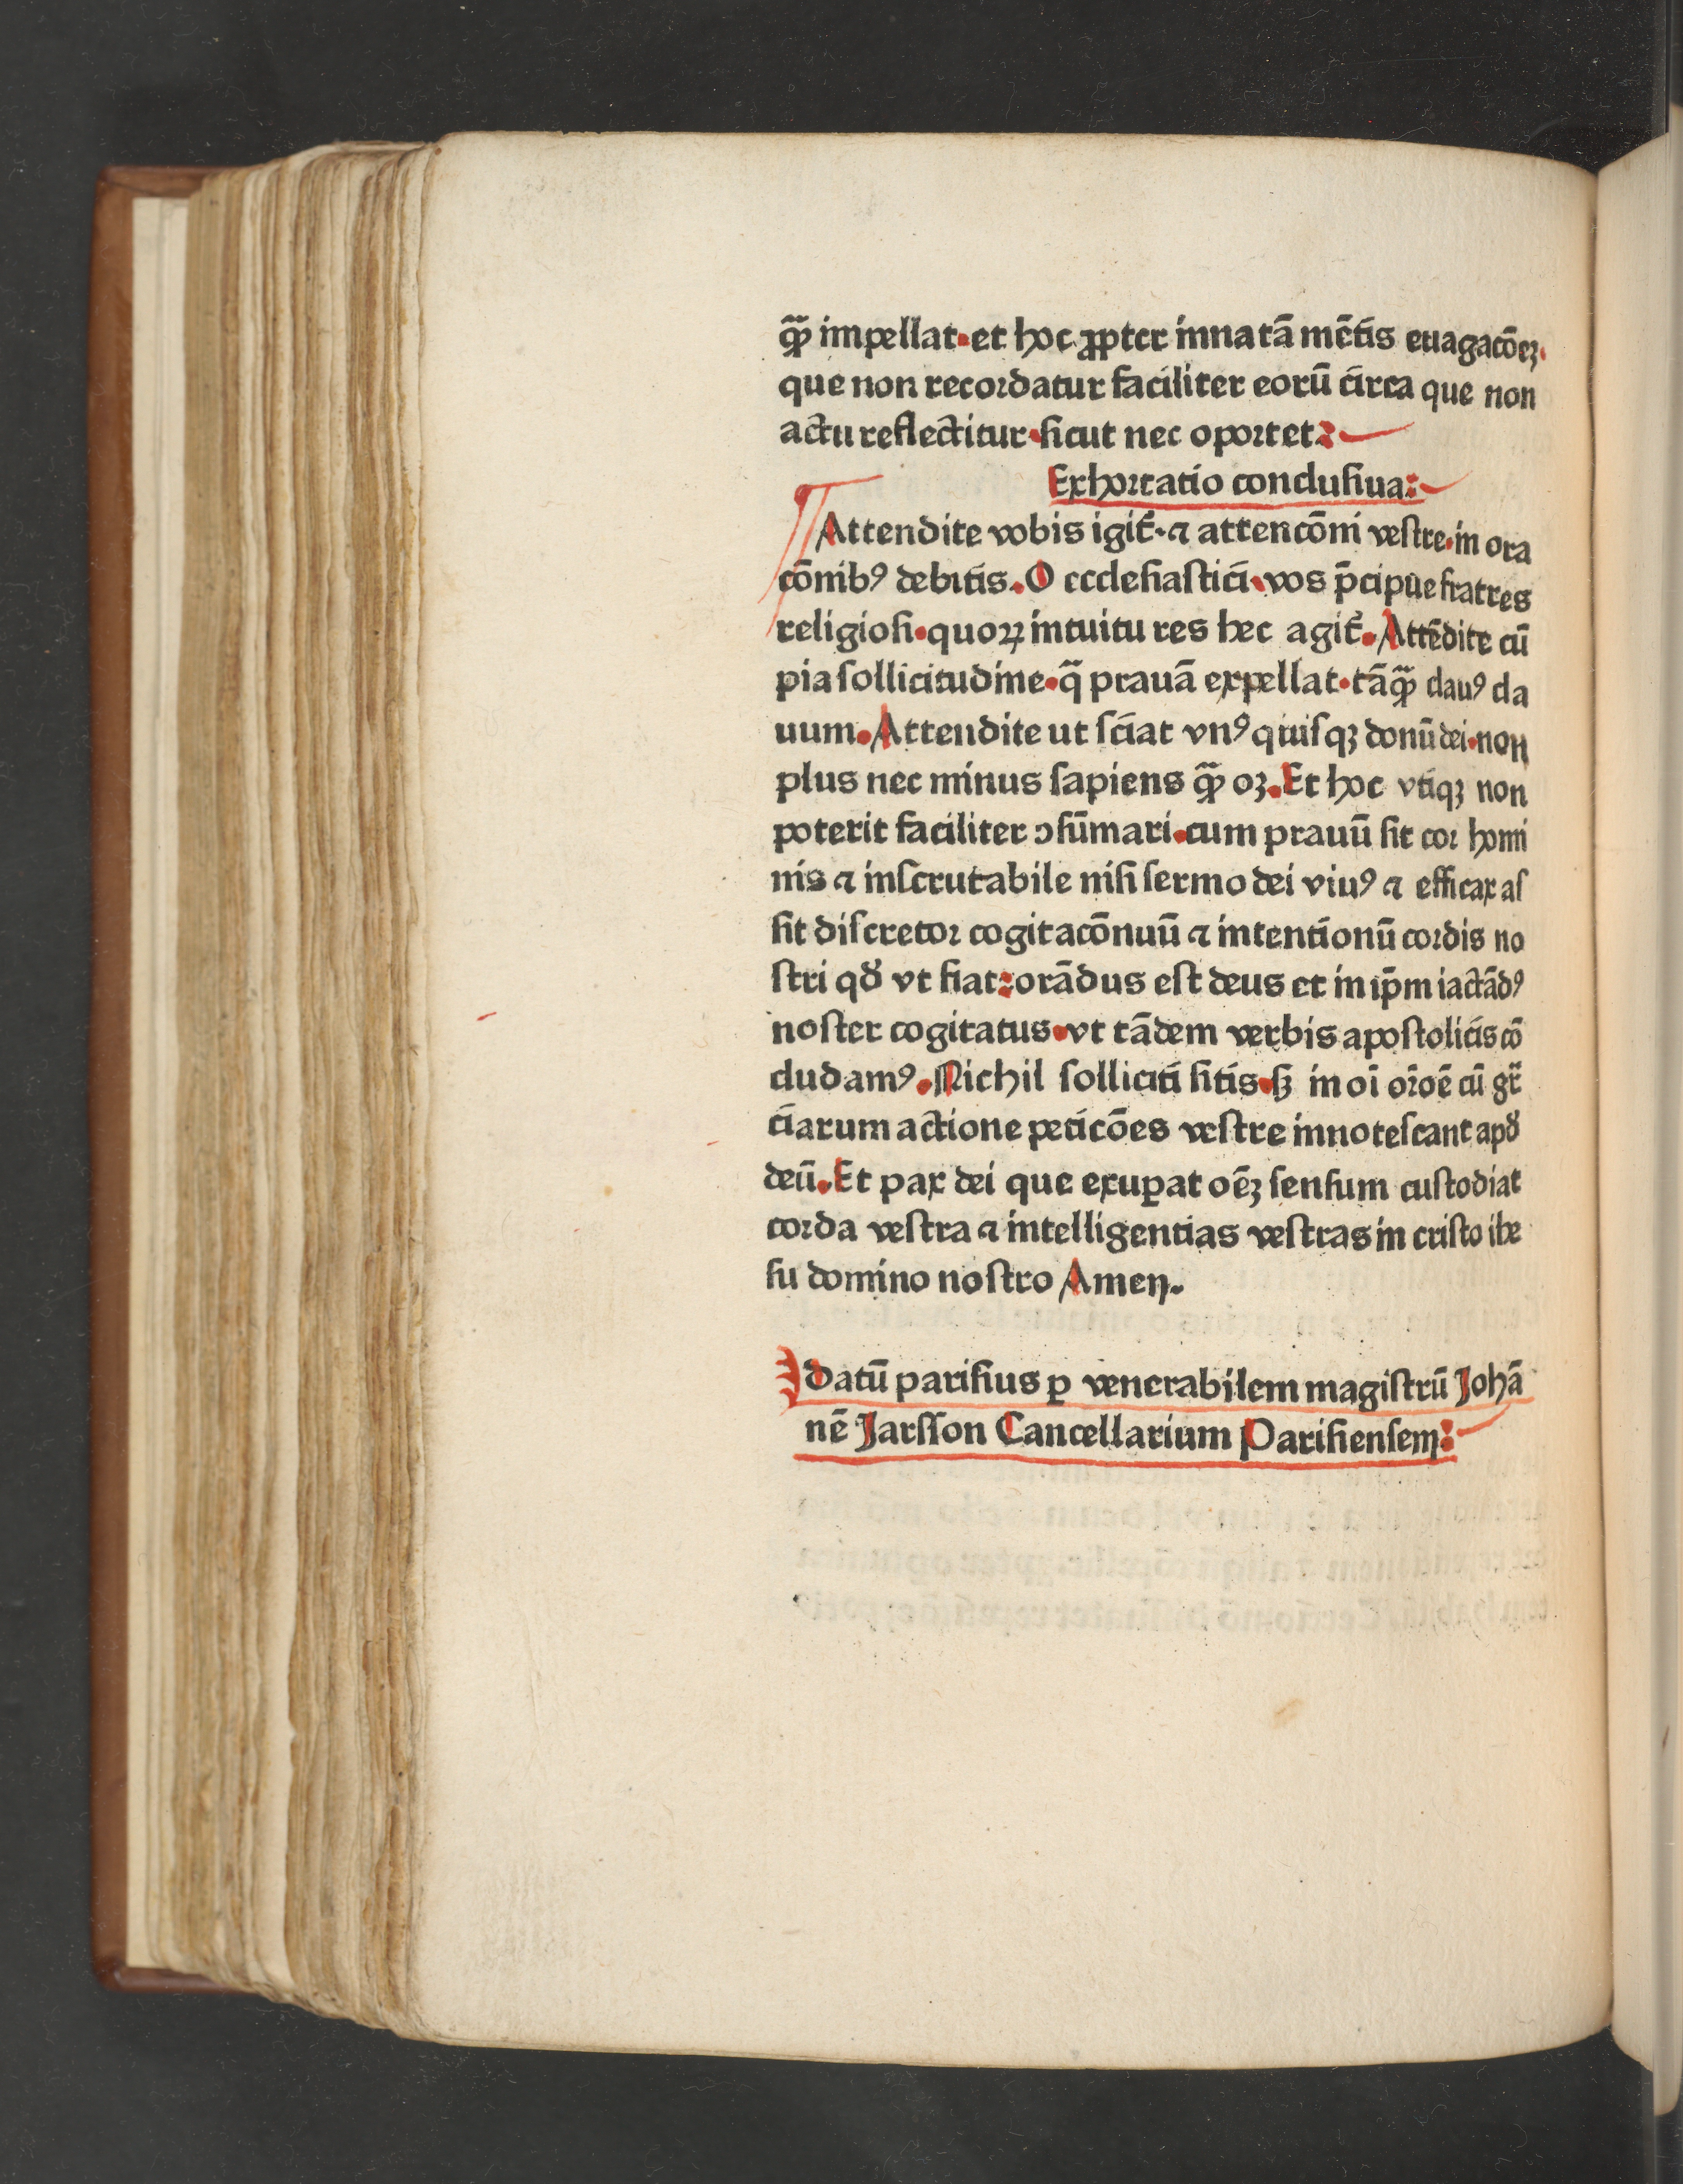 qᷓꝫ impellat·et hoc ꝓpter innatā mētis euagacōeꝫ·
que non recordatur faciliter eorū circa que non
actu reflectitur·sicut nec oportet:
Exhortatio conclusiua:
Attendite vobis igit᷑·⁊ attencōni vestre·in ora
cōnibꝰ debitis.O ecclesiastici·vos p̄cipue fratres
religiosi·quoꝝ intuitu res hec agit᷑.Attēdite cū
pia sollicitudine·q̄ prauā expellat·tāqᷓꝫ clauꝰ cla
uum.Attendite ut sciat vnꝰquisqꝫ donū dei·non
plus nec minus sapiens qᷓꝫ oꝫ.Et hoc vtiqꝫ non
poterit faciliter ↄsūmari·cum prauū sit cor homi
nis ⁊ inscrutabile nisi sermo dei viuꝰ ⁊ efficax as
sit discretor cogitacōnuū ⁊ intentionū cordis no
stri qđ vt fiat:orādus est deus et in ip̄m iactādꝰ
noster cogitatus·vt tādem verbis apostolicis cō
cludamꝰ.Nichil solliciti sitis·sꝫ in oī or̄oē cū gr̄
ciarum actione peticōes vestre innotescant apđ
deū.Et pax dei que exuꝑat oēꝫ sensum custodiat
corda vestra ⁊ intelligentias vestras in cristo ihe
su domino nostro Amen.
datū parisius ꝑ venerabilem magistrū Johā
nē Jarsson Cancellarium Parisiensem: